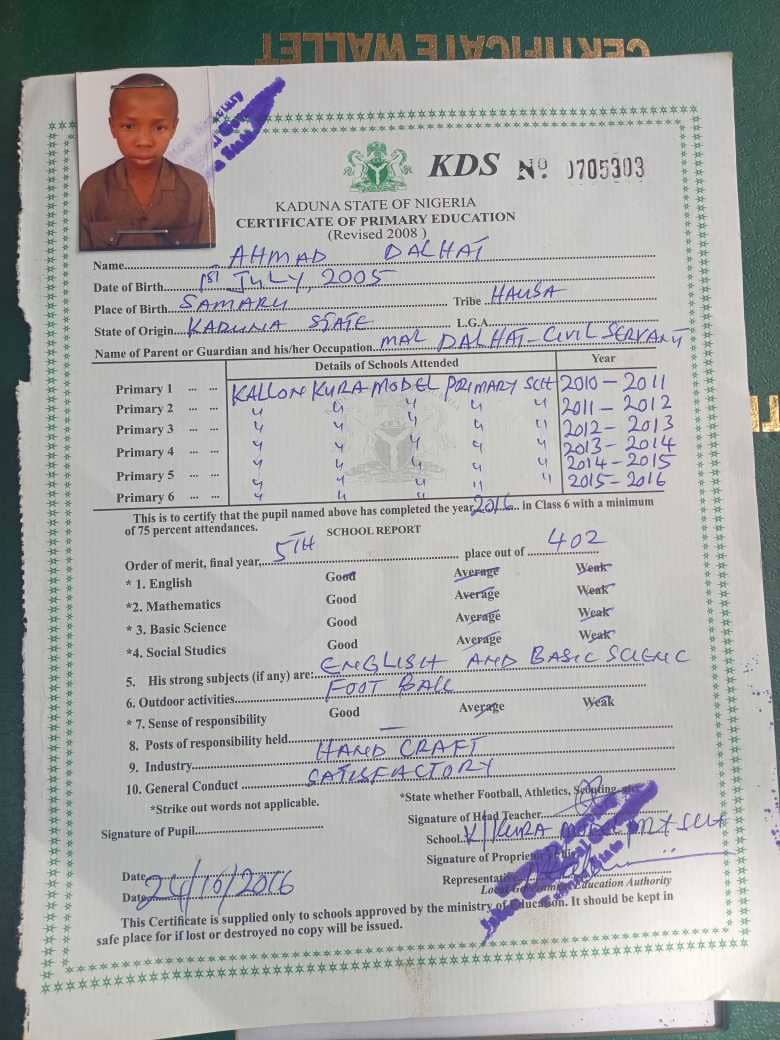 CERTIFICATE WALLET
KDS Nº 0705303
KADUNA STATE OF NIGERIA
CERTIFICATE OF PRIMARY EDUCATION
(Revised 2008 )
Name AHMAD DALHAT
Date of Birth 1ST JULY, 2005
Place of Birth SAMARU Tribe HAUSA
State of Origin KADUNA STATE L.G.A
Name of Parent or Guardian and his/her Occupation MAL DALHAT - CIVIL SERVANT
Details of Schools Attended Year
Primary 1 ... ... KALLON KURA MODEL PRIMARY SCH 2010 - 2011
Primary 2 ... ... " " " " " 2011 - 2012
Primary 3 ... ... " " " " " 2012 - 2013
Primary 4 ... ... " " " " " 2013 - 2014
Primary 5 ... ... " " " " " 2014 - 2015
Primary 6 ... ... " " " " " 2015 - 2016
This is to certify that the pupil named above has completed the year 2016 in Class 6 with a minimum
of 75 percent attendances.
SCHOOL REPORT
Order of merit, final year, 5TH place out of 402
* 1. English Good Average Weak
*2. Mathematics Good Average Weak
* 3. Basic Science Good Average Weak
*4. Social Studics Good Average Weak
5. His strong subjects (if any) are: ENGLISH AND BASIC SCIENC
6. Outdoor activities FOOT BALL
* 7. Sense of responsibility Good Average Weak
8. Posts of responsibility held —
9. Industry HAND CRAFT
10. General Conduct SATISFACTORY
*Strike out words not applicable. *State whether Football, Athletics, Scouting
Signature of Head Teacher
Signature of Pupil School K/KURA MODEL SCH
Signature of
Date Representative
Date 24/10/2016 Local Government Education Authority
This Certificate is supplied only to schools approved by the ministry of Education. It should be kept in
safe place for if lost or destroyed no copy will be issued.